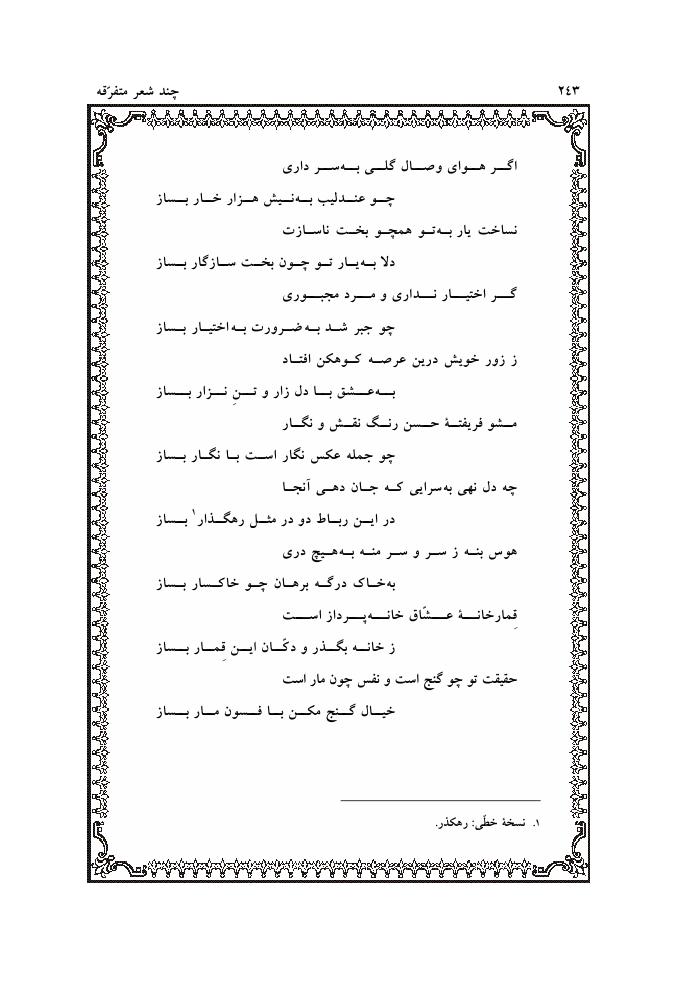 ٢٤٣ چند شعر متفرّقه
اگر هوای وصال گلی به‌سر داری
چو عندلیب به‌نیش هزار خار بساز
نساخت یار به‌تو همچو بخت ناسازت
دلا به‌یار تو چون بخت سازگار بساز
گر اختیار نداری و مرد مجبوری
چو جبر شد به‌ضرورت به‌اختیار بساز
ز زور خویش درین عرصه کوهکن افتاد
به‌عشق با دل زار و تنِ نزار بساز
مشو فریفتهٔ حسن رنگ نقش و نگار
چو جمله عکس نگار است با نگار بساز
چه دل نهی به‌سرایی که جان دهی آنجا
در این رباط دو در مثل رهگذار۱ بساز
هوس بنه ز سر و سر منه به‌هیچ دری
به‌خاک درگه برهان چو خاکسار بساز
قِمارخانهٔ عشّاق خانه‌پرداز است
ز خانه بگذر و دکّان این قِمار بساز
حقیقت تو چو گنج است و نفس چون مار است
خیال گنج مکن با فسون مار بساز
۱. نسخهٔ خطّی: رهکذر.